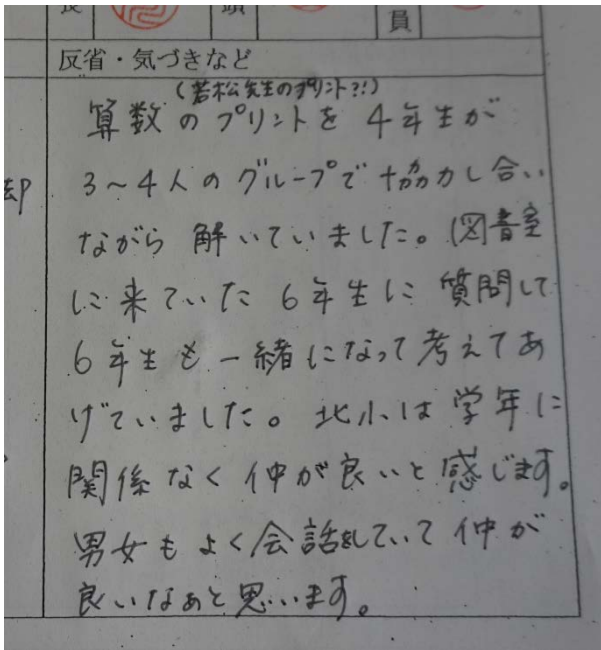 員
反省・気づきなど
(若松先生のプリント?!)
算数のプリントを4年生が
3~4人のグループで協力し合い
ながら解いていました。図書室
に来ていた6年生に質問して
6年生も一緒になって考えてあ
げていました。北小は学年に
関係なく仲が良いと感じます。
男女もよく会話をしていて仲が
良いなあと思います。